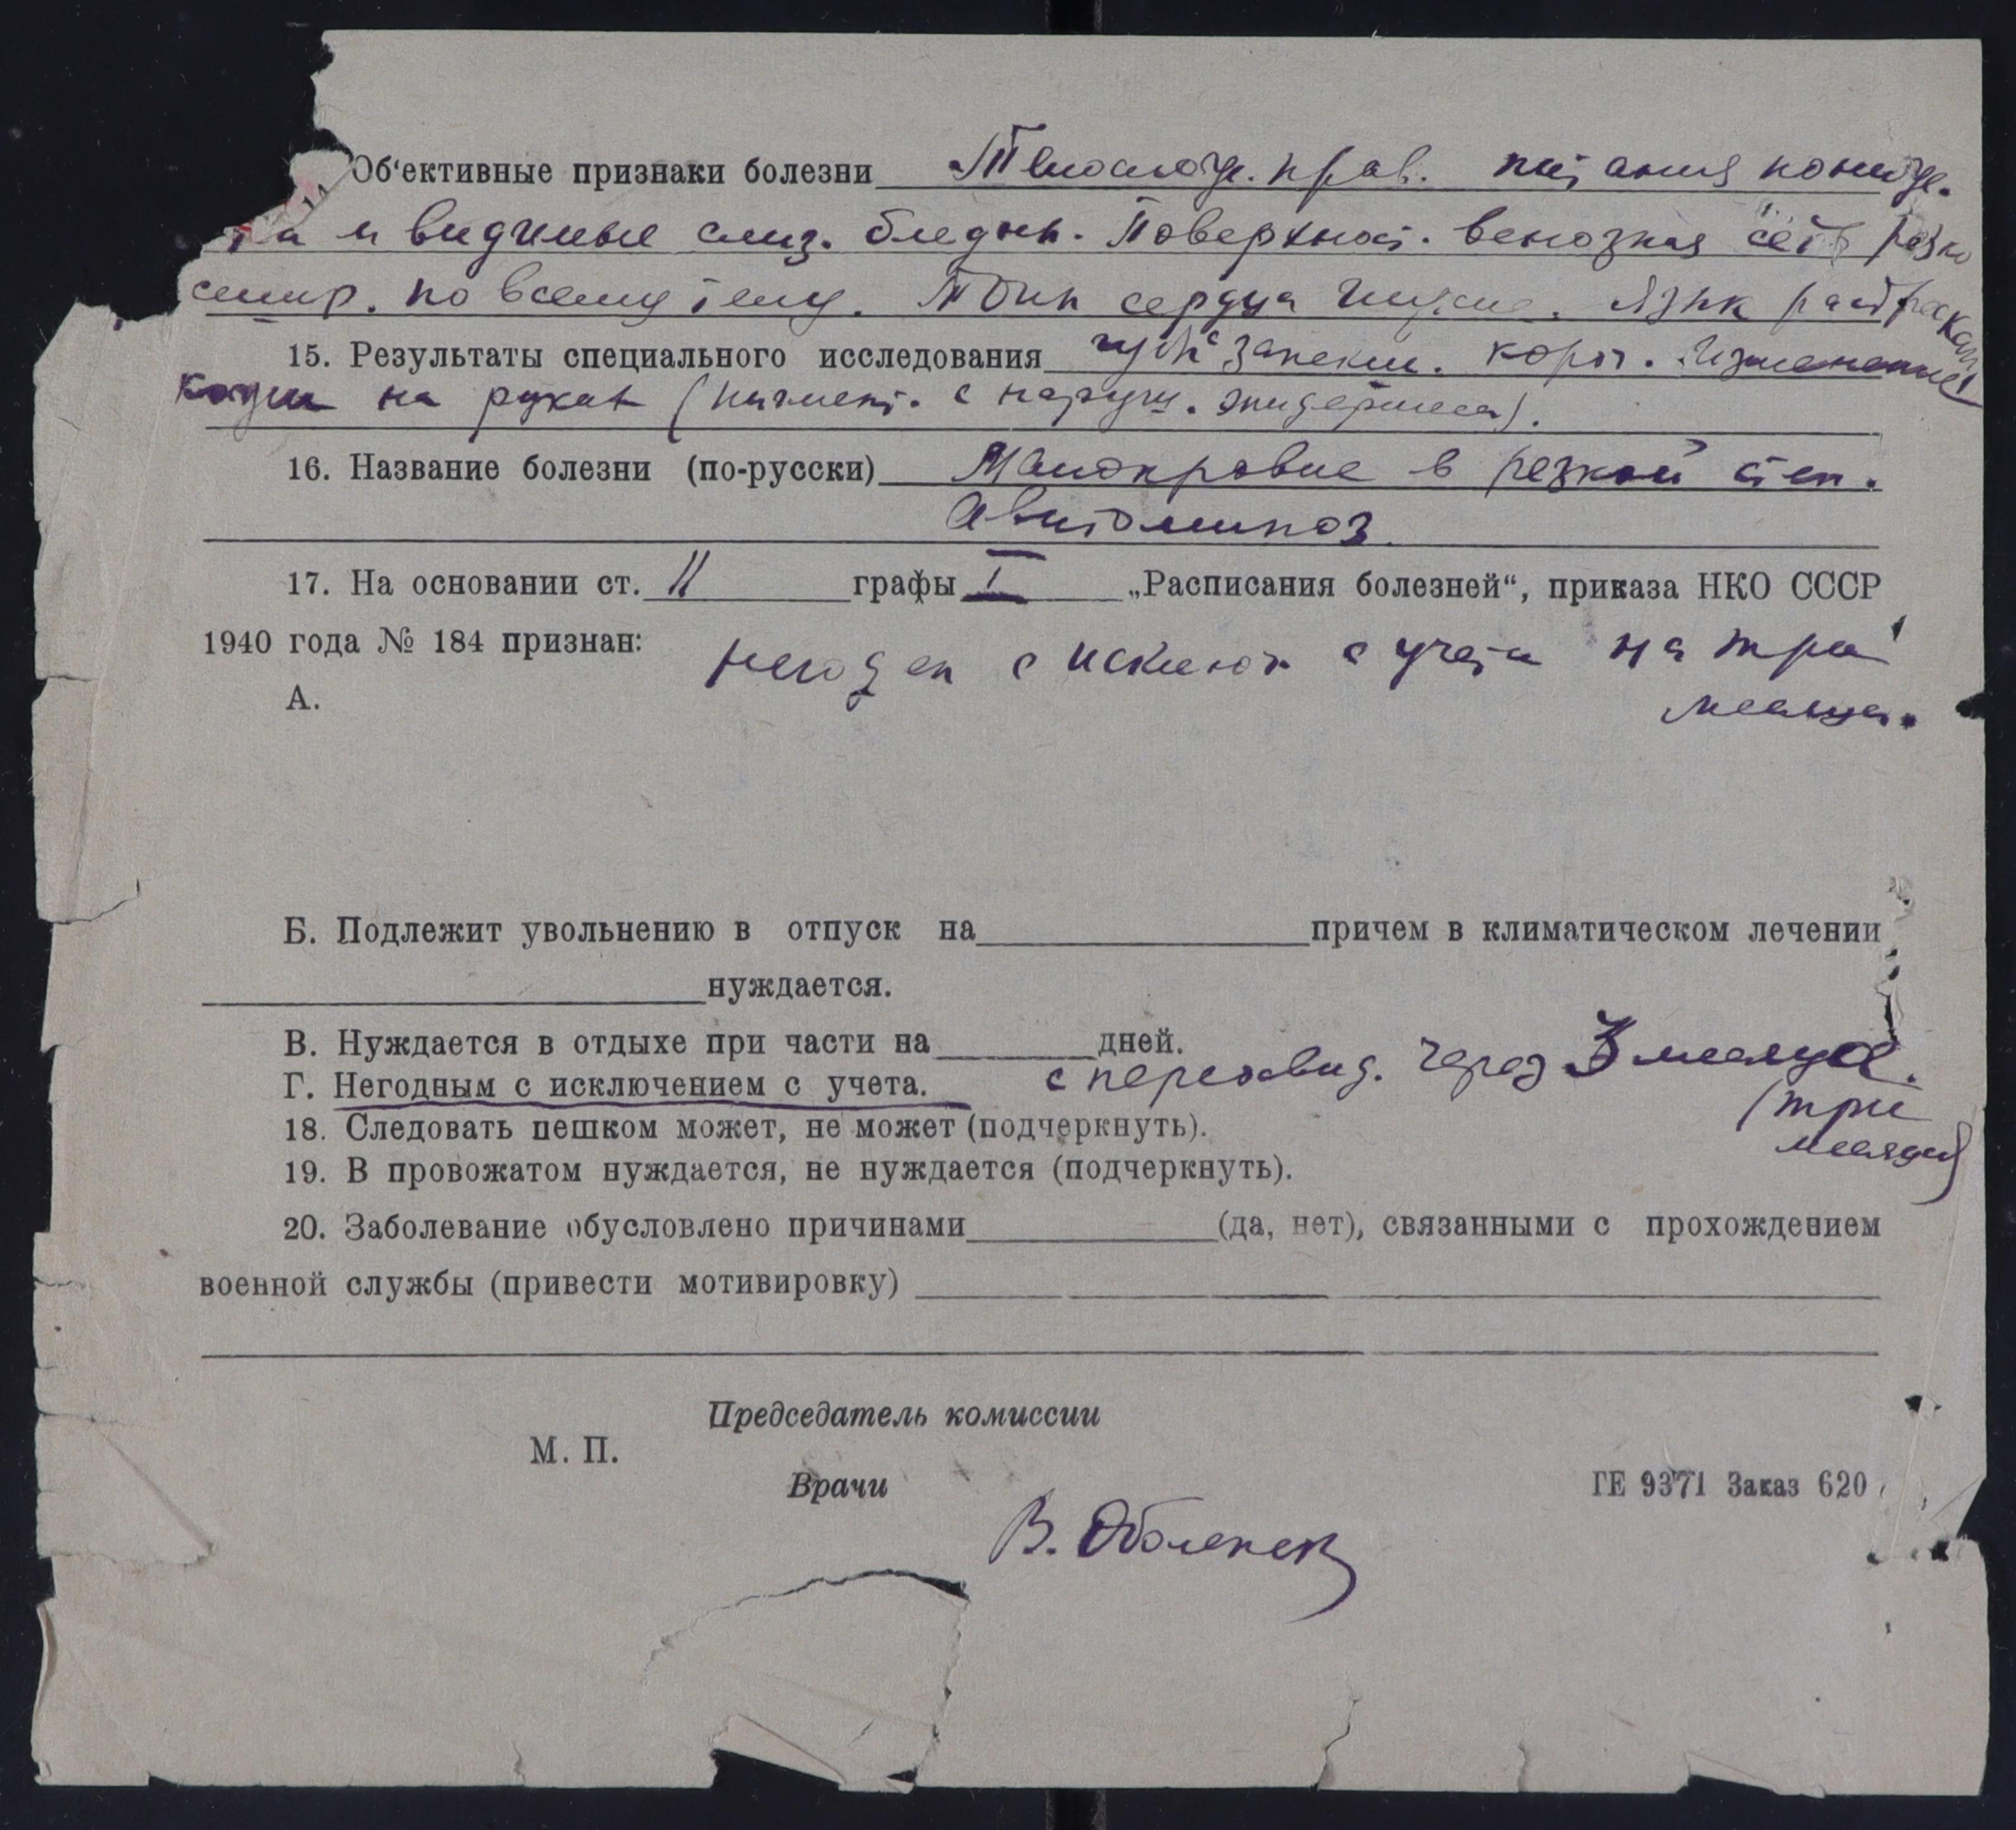 Об‘ективные признаки болезни Телослож. прав. питания пониж.
и видимые слиз. бледны. Поверхност. венозная сеть резко
по всему телу. Тоны сердца глухие. Язык растрескан
15. Результаты специального исследования губы запекш. Изменение
кожи на руках (пигмент. с наруш. эпидермиса).
16. Название болезни (по-русски) Малокровие в резкой степ.
Авитоминоз.
17. На основании ст. 11 графы I „Расписания болезней“, приказа НКО СССР
1940 года № 184 признан: негоден с исключ. с учета на три
месяца.
А.
Б. Подлежит увольнению в отпуск на причем в климатическом лечении
нуждается.
В. Нуждается в отдыхе при части на дней.
Г. Негодным с исключением с учета. с переосвид. через 3 месяца.
(три
месяца)
18. Следовать пешком может, не может (подчеркнуть).
19. В провожатом нуждается, не нуждается (подчеркнуть).
20. Заболевание обусловлено причинами (да, нет), связанными с прохождением
военной службы (привести мотивировку)
Председатель комиссии
М. П.
Врачи
ГЕ 9371 Заказ 620
В. Оболенск